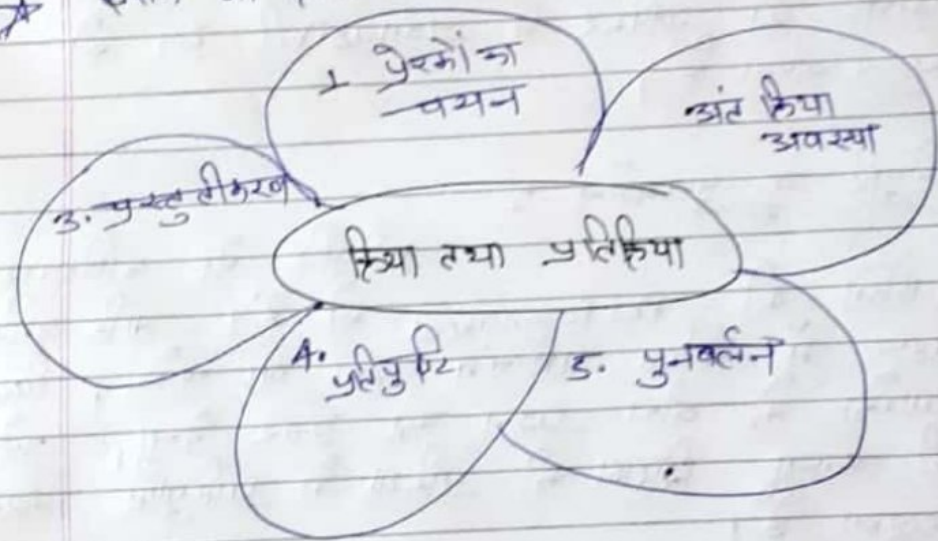 1 प्रेरकों का
चयन
अंत क्रिया
अवस्था
3. प्रस्तुतीकरण
क्रिया तथा प्रतिक्रिया
4.
प्रतिपुष्टि
5. पुनवर्लन